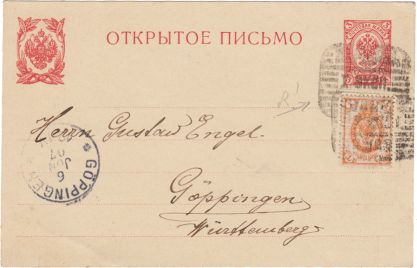 ОТКРЫТОЕ ПИСЬМО
Herrn Gustav Engel.
Göppingen
Württemberg
GÖPPINGEN
6
JUN
07